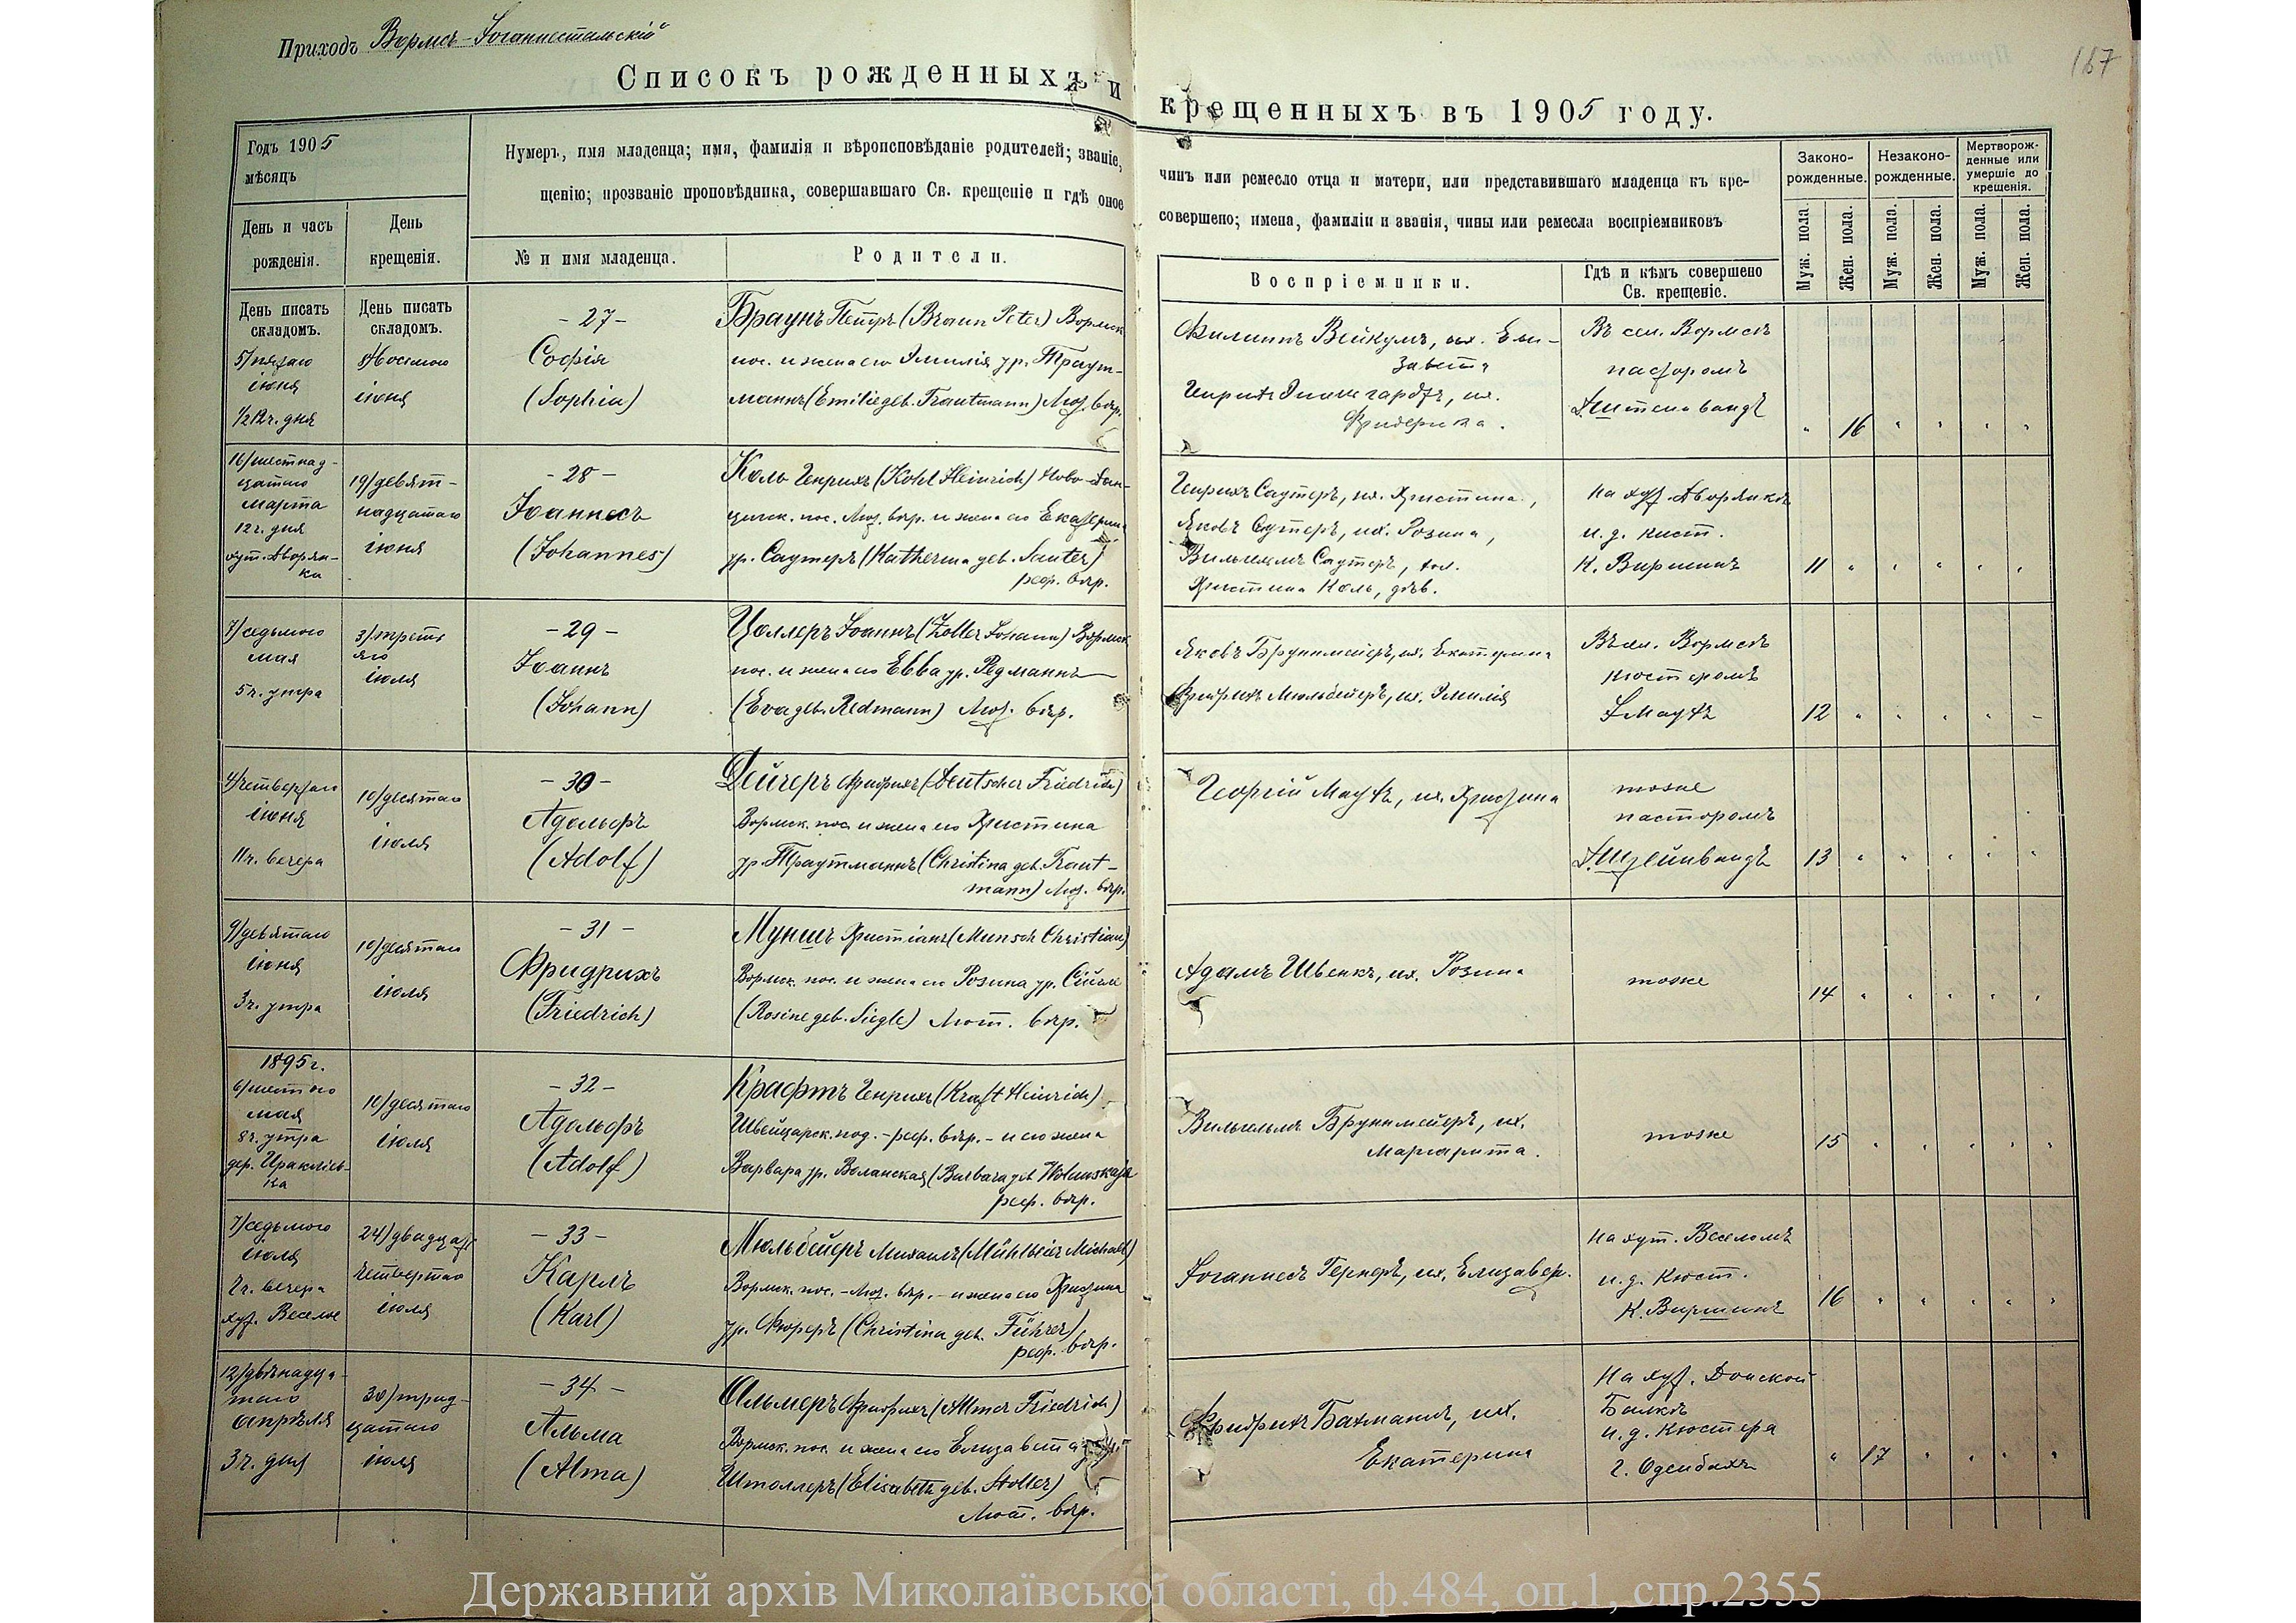 Приходъ Вормсъ-Іоганнестальскій
167
Списокъ рожденныхъ и крещенныхъ въ 1905 году.
Годъ 1905
мѣсяцъ
Нумеръ, имя младенца; имя, фамилія и вѣроисповѣданіе родителей; званіе,
щенію; прозваніе проповѣдника, совершавшаго Св. крещеніе и гдѣ оное
чинъ или ремесло отца и матери, или представившаго младенца къ кре-
совершено; имена, фамиліи и званія, чины или ремесла воспріемниковъ
Законо-
рожденные.
Незаконо-
рожденные.
Мертворож-
денные или
умершіе до
крещенія.
День и часъ
рожденія.
День
крещенія.
№ и имя младенца.
Родители.
Воспріемники.
Гдѣ и кѣмъ совершено
Св. крещеніе.
Муж. пола.
Жен. пола.
Муж. пола.
Жен. пола.
Муж. пола.
Жен. пола.
День писать
складомъ.
День писать
складомъ.
5/пятаго
іюня
1/2 12 ч. дня
8/восьмого
іюня
-27-
Софія
(Sophia)
Браунъ Петръ (Braun Peter) Вормск.
пос. и жена его Эмилія ур. Траут-
маннъ (Emilie geb. Trautmann) Лют. вѣр.
Филиппъ Вейкумъ, их. Ели-
завета
Фридерика.
Въ сел. Вормсъ
пасторомъ
16
16/шестнад-
цатаго
марта
12 ч. дня
хут. Дворян-
ка
19/девят-
надцатаго
іюня
-28-
Іоаннесъ
(Johannes)
Коль Генрихъ (Kohl Heinrich) Ново-Дан-
цигск. пос. Лют. вѣр. и жена его Екатерина
ур. Саутеръ (Katherina geb. Sauter)
реф. вѣр.
Генрихъ Саутеръ, их. Христина,
Яковъ Саутеръ, их. Розина,
Вильгельмъ Саутеръ, хол.
Христина Коль, дѣв.
На хут. Дворянкѣ
и. д. кист.
К. Виршингъ
11
7/седьмого
мая
5 ч. утра
3/треть
яго
іюля
-29-
Іоаннъ
(Johann)
Цоллеръ Іоаннъ (Zoller Johann) Вормск.
пос. и жена его Евва ур. Редманнъ
(Eva geb. Redmann) Лют. вѣр.
Яковъ Бруннмейеръ, их. Екатерина
Фридрихъ Мюльбейеръ, их. Эмилія
Въ сел. Вормсъ
кюстеромъ
12
4/четвертаго
іюня
11 ч. вечера
10/десятаго
іюля
-30-
Адольфъ
(Adolf)
Дейчеръ Фридрихъ (Deutscher Friedrich)
Вормск. пос. и жена его Христина
ур. Траутманнъ (Christina geb. Traut-
mann) Лют. вѣр.
Георгій Маутъ, их. Христина
тоже
пасторомъ
І. Штейнвандъ
13
9/девятаго
іюня
3 ч. утра
10/десятаго
іюля
-31-
Фридрихъ
(Friedrich)
Муншъ Христіанъ (Munsch Christian)
Вормск. пос. и жена его Розина ур. Сигле
(Rosine geb. Siegle) Лют. вѣр.
Адамъ Швенкъ, их. Розина
тоже
14
1895 г.
6/шестого
мая
8 ч. утра
дер. Ираклiев-
ка
10/десятаго
іюля
-32-
Адольфъ
(Adolf)
Крафтъ Генрихъ (Kraft Heinrich)
Швейцарск. под. - реф. вѣр. - и его жена
Варвара ур. Воланская (Barbara geb. Wolanskaja
реф. вѣр.
Вильгельмъ Бруннмейеръ, их.
Маргарита.
тоже
15
7/седьмого
іюля
7 ч. вечера
хут. Веселое
24/двадцат
четвертаго
іюля
-33-
Карлъ
(Karl)
Мюльбейеръ Михаилъ (Mühlbeier Michael)
Вормск. пос. - Лют. вѣр. - и жена его Христина
ур. Фюреръ (Christina geb. Führer)
реф. вѣр.
Іоганнесъ Гернеръ, их. Елизавет.
На хут. Веселомъ
и. д. Кюст.
К. Виршингъ
16
12/двѣнадца-
таго
апрѣля
3 ч. дня
30/трид-
цатаго
іюля
-34-
Альма
(Alma)
Альмеръ Фридрихъ (Allmer Friedrich)
Вормск. пос. и жена его Елизавета ур.
Штоллеръ (Elisabeth geb. Stoller)
Лют. вѣр.
Фридрихъ Бахманнъ, их.
Екатерина
На хут. Донской
Балкѣ
и. д. Кюстера
Г. Оденбахъ
17
Державний архів Миколаївської області, ф.484, оп.1, спр.2355